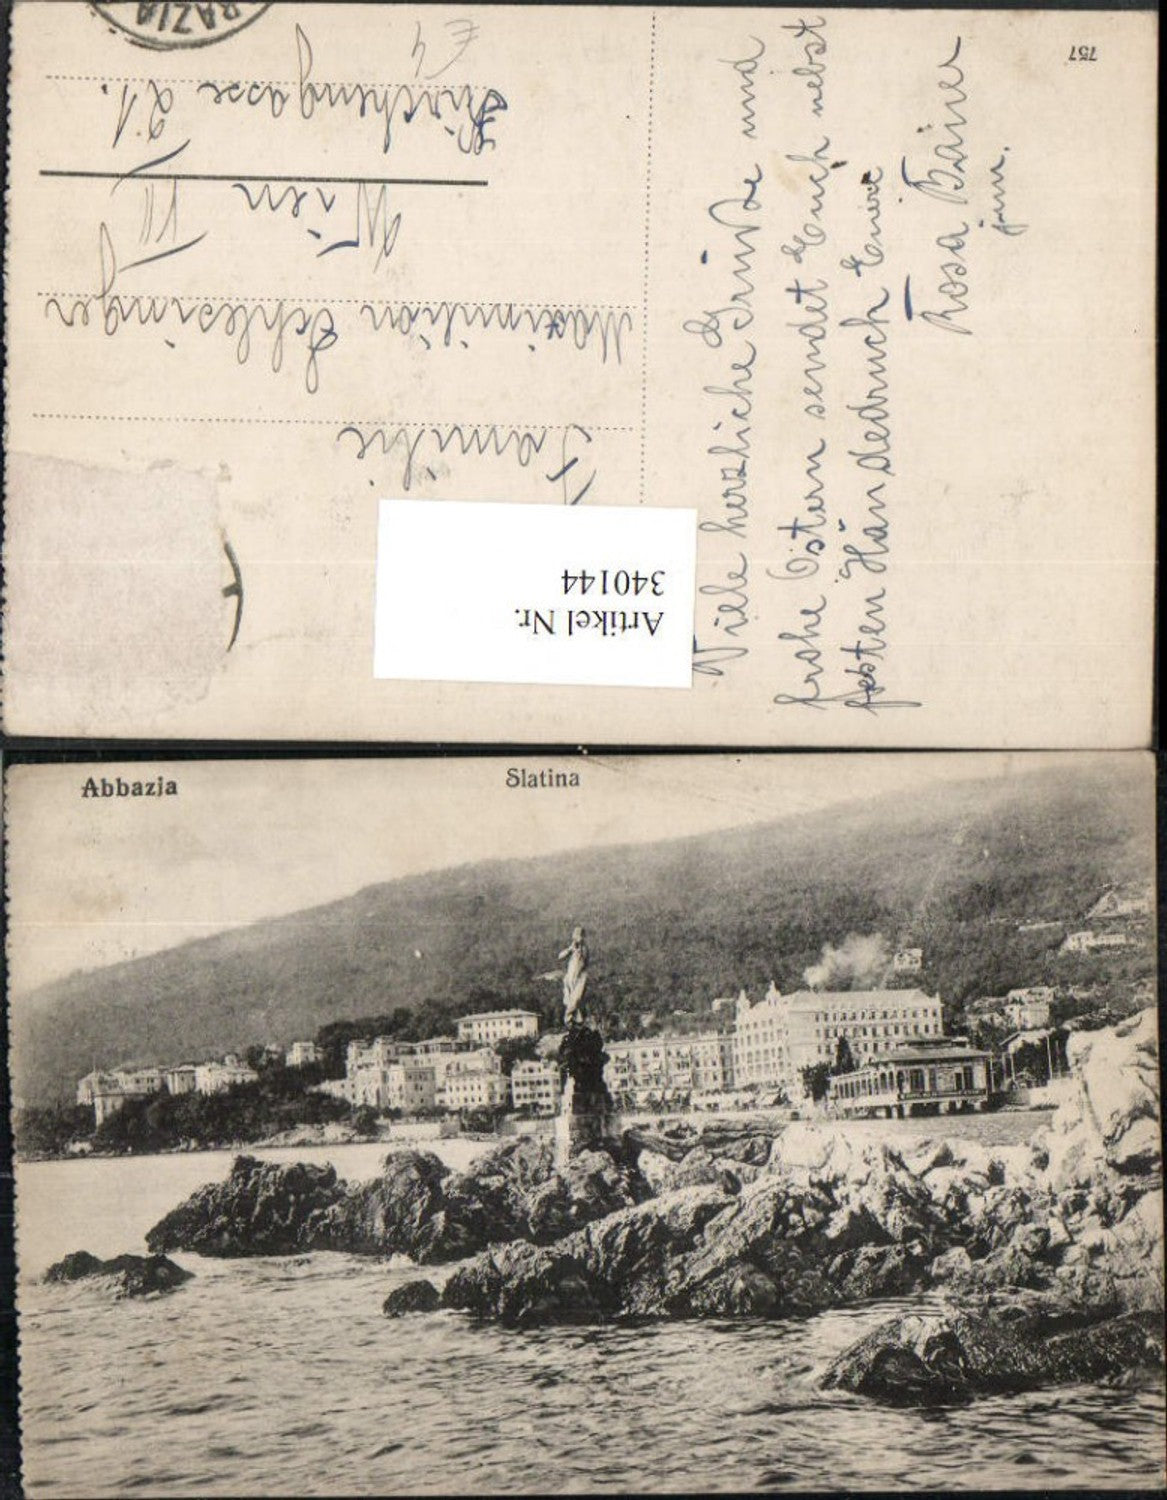 Viele herzliche Grüsse und
frohe Ostern sendet Euch nebst
festen Händedruck Euere
Rosa
jun.
757
Familie
Maximilian Schlesinger
Wien VII
Kirchengasse 21.
RAZIA
Artikel Nr.
340144
Abbazia
Slatina